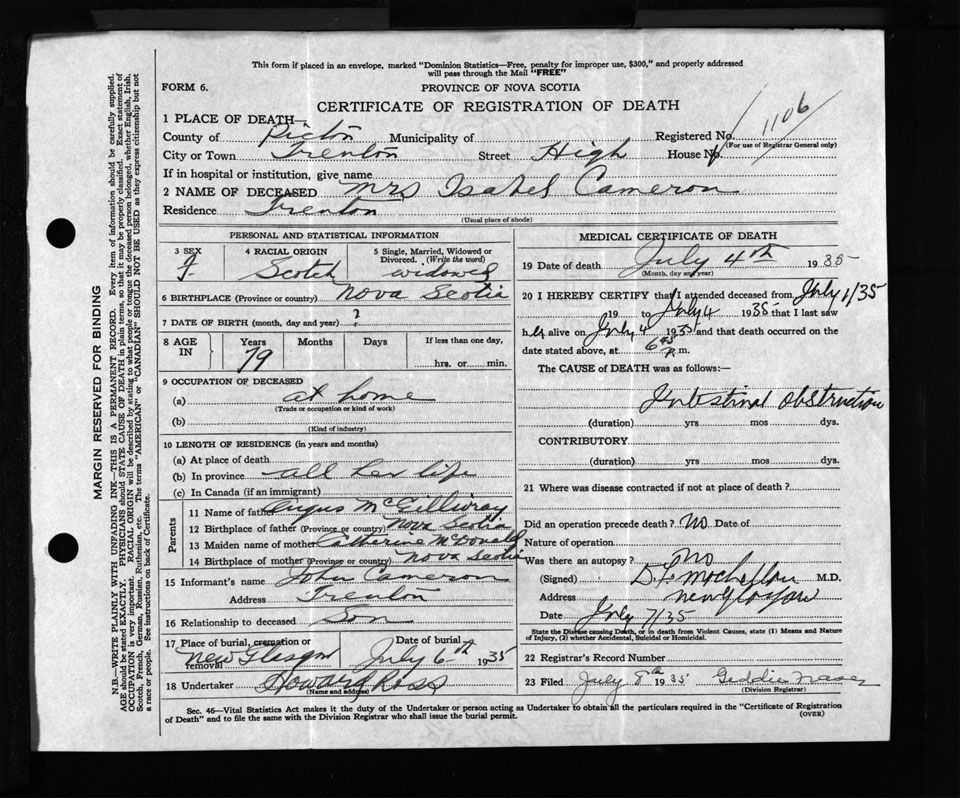 This form if placed in an envelope, marked "Dominion Statistics—Free, penalty for improper use, $300," and properly addressed
will pass through the Mail "FREE"
FORM 6.
PROVINCE OF NOVA SCOTIA
CERTIFICATE OF REGISTRATION OF DEATH
1 PLACE OF DEATH—
County of Pictou Municipality of Registered No. 1106
(For use of Registrar General only)
City or Town Trenton Street High House No.
If in hospital or institution, give name
2 NAME OF DECEASED Mrs Isabel Cameron
Residence Trenton
(Usual place of abode)
PERSONAL AND STATISTICAL INFORMATION
3 SEX F
4 RACIAL ORIGIN Scotch
5 Single, Married, Widowed or
Divorced. (Write the word) widowed
6 BIRTHPLACE (Province or country) Nova Scotia
7 DATE OF BIRTH (month, day and year) ?
8 AGE IN Years 79 Months Days If less than one day,
hrs. or min.
9 OCCUPATION OF DECEASED
(a) at home
(Trade or occupation or kind of work)
(b)
(Kind of industry)
10 LENGTH OF RESIDENCE (in years and months)
(a) At place of death
(b) In province all her life
(c) In Canada (if an immigrant)
Parents
11 Name of father Angus McGillivray
12 Birthplace of father (Province or country) Nova Scotia
13 Maiden name of mother Catherine McDonald
14 Birthplace of mother (Province or country) Nova Scotia
15 Informant's name John Cameron
Address Trenton
16 Relationship to deceased Son
17 Place of burial, cremation or
removal New Glasgow
Date of burial July 6th 1935
18 Undertaker Howard Ross
(Name and address)
MEDICAL CERTIFICATE OF DEATH
19 Date of death July 4th 1935
(Month, day and year)
20 I HEREBY CERTIFY that I attended deceased from July 1/35
19 to July 4 1935 that I last saw
her alive on July 4 1935 and that death occurred on the
date stated above, at 6 45 p.m.
The CAUSE of DEATH was as follows:—
Intestinal obstruction
(duration) yrs mos dys.
CONTRIBUTORY
(duration) yrs mos dys.
21 Where was disease contracted if not at place of death?
Did an operation precede death? No Date of
Nature of operation
Was there an autopsy? No
(Signed) M.D.
Address New Glasgow
Date July 7/35
State the Disease causing Death, or in death from Violent Causes, state (1) Means and Nature
of Injury, (2) whether Accidental, Suicidal or Homicidal.
22 Registrar's Record Number
23 Filed July 8th 1935 Geddie Fraser
(Division Registrar)
Sec. 46—Vital Statistics Act makes it the duty of the Undertaker or person acting as Undertaker to obtain all the particulars required in the "Certificate of Registration
of Death" and to file the same with the Division Registrar who shall issue the burial permit.
(OVER)
MARGIN RESERVED FOR BINDING
N.B.—WRITE PLAINLY WITH UNFADING INK—THIS IS A PERMANENT RECORD. Every item of information should be carefully supplied.
AGE should be stated EXACTLY. PHYSICIANS should STATE CAUSE OF DEATH in plain terms, so that it may be properly classified. Exact statement of
OCCUPATION is very important. RACIAL ORIGIN will be described by stating to what people or tongue the deceased person belonged, whether English, Irish,
Scotch, French, German, Russian, Ruthenian, etc. The terms "AMERICAN" or "CANADIAN" SHOULD NOT BE USED as they express citizenship but not
a race or people. See instructions on back of Certificate.